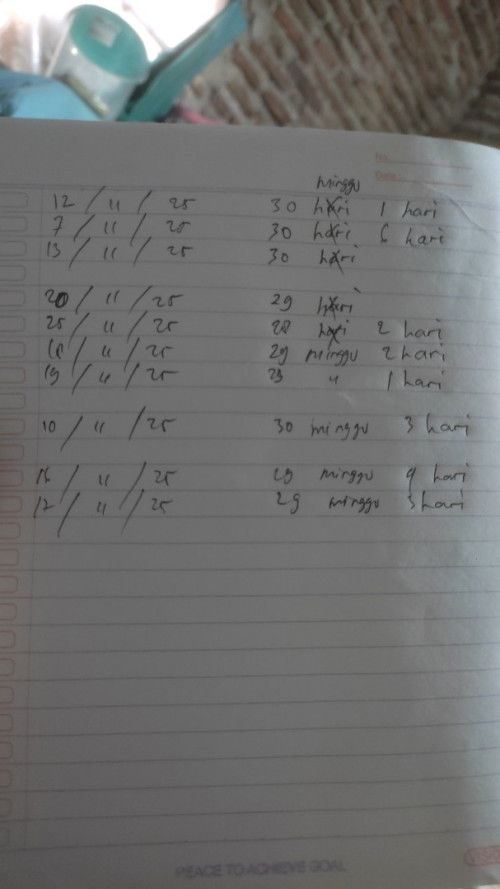 No.
Date:
minggu
12 / 11 / 25 30 hari 1 hari
7 / 11 / 25 30 hari 6 hari
13 / 11 / 25 30 hari
20 / 11 / 25 29 hari
25 / 11 / 25 28 hari 2 hari
18 / 11 / 25 29 minggu 2 hari
19 / 11 / 25 29 " 1 hari
10 / 11 / 25 30 minggu 3 hari
16 / 11 / 25 29 minggu 4 hari
17 / 11 / 25 29 minggu 3 hari
PEACE TO ACHIEVE GOAL